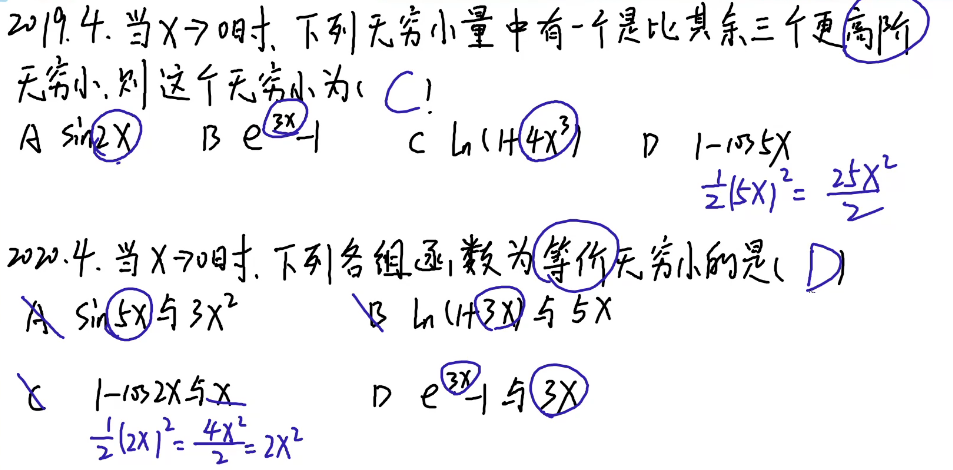 2019.4. 当X→0时. 下列无穷小量中有一个是比其余三个更高阶
无穷小.则这个无穷小为( C )
A sin2X B e^{3X}-1 C ln(1+4X^3) D 1-cos5X
1/2(5X)^2 = 25X^2/2
2020.4. 当X→0时. 下列各组函数为等价无穷小的是( D )
A sin5X与3X^2 B ln(1+3X)与5X
C 1-cos2X与X D e^{3X}-1与3X
1/2(2X)^2 = 4X^2/2 = 2X^2